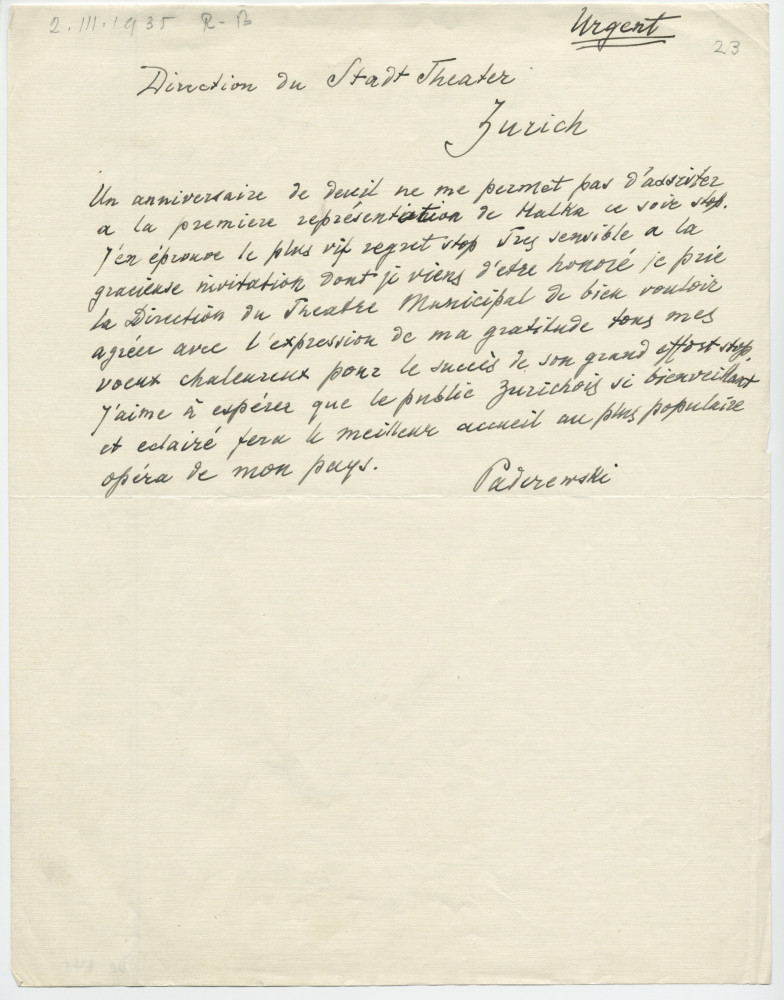 2.III.1935 R-B
Urgent
23
Direction du Stadt Theater
Zurich
Un anniversaire de deuil ne me permet pas d'assister
a la premiere représentation de Halka ce soir stop.
J'en éprouve le plus vif regret stop Tres sensible a la
gracieuse invitation dont je viens d'etre honoré je prie
la Direction du Theatre Municipal de bien vouloir
agréer avec l'expression de ma gratitude tous mes
voeux chaleureux pour le succès de son grand effort stop.
J'aime à espérer que le public zurichois si bienveillant
et eclairé fera le meilleur accueil au plus populaire
opéra de mon pays.
Paderewski